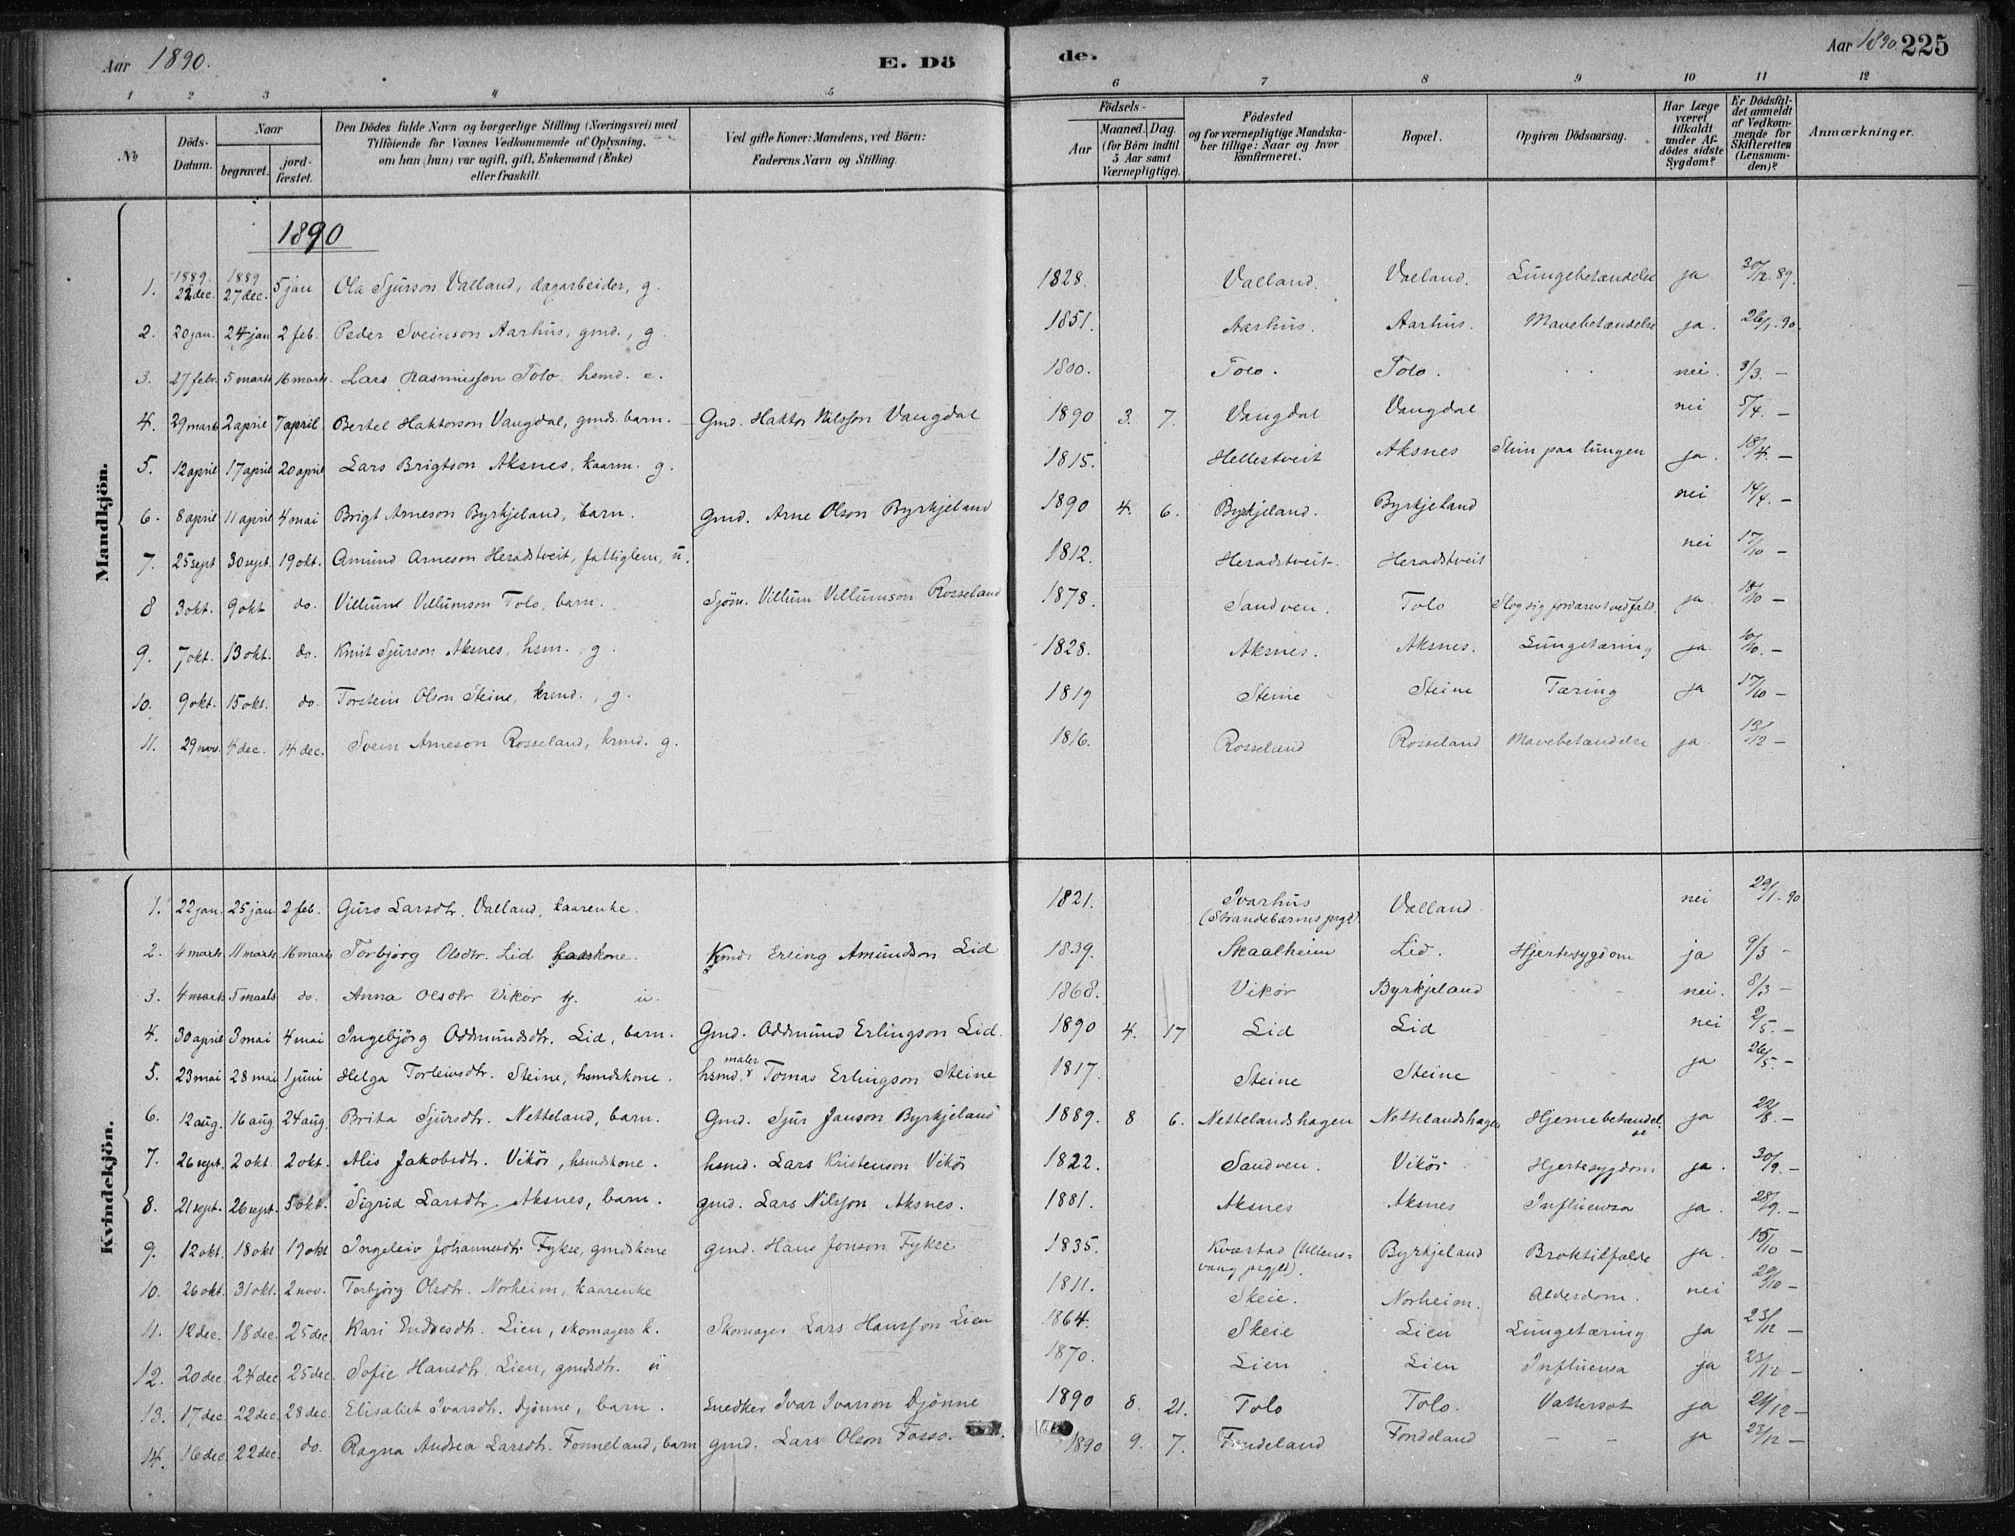 Aar 1890. E. Döde. Aar 1890 225
1 2 3 4 5 6 7 8 9 10 11 12
№
Döds-Datum.
Naar
begravet.
jord-fæstet.
Den Dödes fulde Navn og borgerlige Stilling (Næringsvei) med
Tilföiende for Voxnes Vedkommende af Oplysning,
om han (hun) var ugift, gift, Enkemand (Enke)
eller fraskilt.
Ved gifte Koner: Mandens, ved Börn:
Faderens Navn og Stilling.
Födsels-
Aar
Maaned. Dag.
(for Börn indtil
5 Aar samt
Værnepligtige).
Födested
og for værnepligtige Mandska-
ber tillige: Naar og hvor
konfirmeret.
Bopæl.
Opgiven Dödsaarsag.
Har Læge
været
tilkaldt
under Af-
dödes sidste
Sygdom?
Er Dödsfal-
det anmeldt
af Vedkom-
mende for
Skifteretten
(Lensman-
den)?
Anmærkninger.
Mandkjön.
1890
1. 1889. 22 dec. 1889 27 dec. 5 jan Ola Sjurson Valland, dagarbeider, g. 1828. Valland. Valland. Lungebetændelse ja 30/12. 89.
2. 20 jan. 24 jan 2 feb. Peder Sveinson Aarhus, gmd., g. 1851. Aarhus. Aarhus. Mavebetændelse ja. 26/1. 90.
3. 27 febr. 5 marts 16 marts. Lars Rasmusson Tolo. hsmd. e. 1800. Tolo. Tolo. nei. 3/3. —
4. 29 marts 2 april 7 april Bertel Haktorson Vangdal, gmds. barn. Gmd. Haktor Nilsson Vangdal 1890 3. 7. Vangdal Vangdal nei 5/4. —
5. 12 april 17 april 20 april Lars Brigtson Aksnes, kaarm. g. 1815. Hellestveit Aksnes Slim paa lungen ja. 18/4. —
6. 8 april 11 april 4 mai Brigt Arneson Byrkjeland, barn. Gmd. Arne Olson Byrkjeland 1890 4. 6. Byrkjeland. Byrkjeland nei 14/4. —
7. 25 sept 30 sept. 19 okt. Amund Arneson Heradstveit, fattiglem, u. 1812. Heradstveit. Heradstveit nei 17/10 —
8 3 okt. 9 okt do. Villum Villumson Tolo, barn. Sjöm. Villum Villumson Rosseland 1878. Sandven. Tolo Slog sig fordærvet ved fald. ja. 10/10 —
9. 7 okt. 13 okt. do. Knut Sjurson Aksnes, hsm., g. 1828. Aksnes. Aksnes. Lungetæring ja. 10/10. —
10. 9 okt. 15 okt. do. Torstein Olson Steine, krmd., g. 1819 Steine Steine Tæring ja 17/10 —
11. 29 nov. 4 dec. 14 dec. Svein Arneson Rosseland, krmd. g. 1816. Rosseland Rosseland Mavebetændelse ja 13/12 —
Kvindekjön.
1. 22 jan. 25 jan 2 feb. Guro Larsdtr. Valland, kaarenke. 1821. Ivarhus (Strandebarms prgd) Valland. nei 29/1. 90
2. 4 marts 11 marts 16 marts Torbjorg Olsdtr. Lid kone. Kmd. Erling Amundson Lid 1839. Skaalheim Lid. Hjertesygdom ja 9/3 —
3. 4 marts 5 marts do. Anna Olsdtr Vikör u. 1868. Vikör Byrkjeland nei. 8/3 —
4. 30 april 3 mai 4 mai Ingebjörg Oddmundsdtr. Lid, barn. Gmd. Oddmund Erlingson Lid. 1890 4. 17 Lid Lid nei 2/5. —
5. 23 mai 28 mai 1 juni Helga Torleivsdtr. Steine, hsmdskone. hsmd. maler Tomas Erlingson Steine 1817. Steine Steine ja 26/5. —
6. 12 aug. 16 aug. 24 aug. Brita Sjursdtr. Netteland, barn. Gmd. Sjur Janson Byrkjeland 1889. 8 6. Nettelandshagen Nettelandshagen Hjernebetændelse ja 22/8. —
7. 26 sept. 2 okt. 2 okt. Alis Jakobsdtr. Vikör, hsmdskone. hsmd. Lars Kristenson Vikör 1822. Sandven. Vikör Hjertesygdom ja. 30/9. —
8. 21 sept. 26 sept. 5 okt. Sigrid Larsdtr. Aksnes, barn. gmd. Lars Nilsson Aksnes. 1881. Aksnes Aksnes Influensa ja. 28/9. —
9. 12 okt. 18 okt 19 okt Ingeleiv Johannesdtr Fykse, gmdskone gmd. Hans Jonson Fykse 1835. Kværstad (Ullens-vang prgjld). Byrkjeland Broktilfælde ja. 15/10 —
10. 26 okt. 31 okt. 2 nov. Torbjörg Olsdtr. Norheim, kaarenke 1811. Skeie. Norheim. Alderdom. nei 29/10 —
11. 12 dec. 18 dec. 25 dec Kari Endresdtr. Lien, skomagers k. Skomager Lars Hansson Lien 1864. Skeie Lien Lungetæring ja 23/12 —
12. 20 dec. 24 dec 25 dec. Sofie Hansdtr. Lien, gmdsdtr. u 1870. Lien Lien Influensa ja 23/12 —
13. 17 dec. 22 dec. 28 dec. Elisabet Ivarsdtr. Djönne, barn. Snedker Ivar Ivarson Djönne 1890 8. 21. Tolo Tolo. Vattersot ja 24/12 —
14. 16 dec. 22 dec. do. Ragna Andrea Larsdtr. Fonneland, barn gmd. Lars Olson Fosso. 1890 9. 7. Fondeland Fondeland — — ja 23/12 —